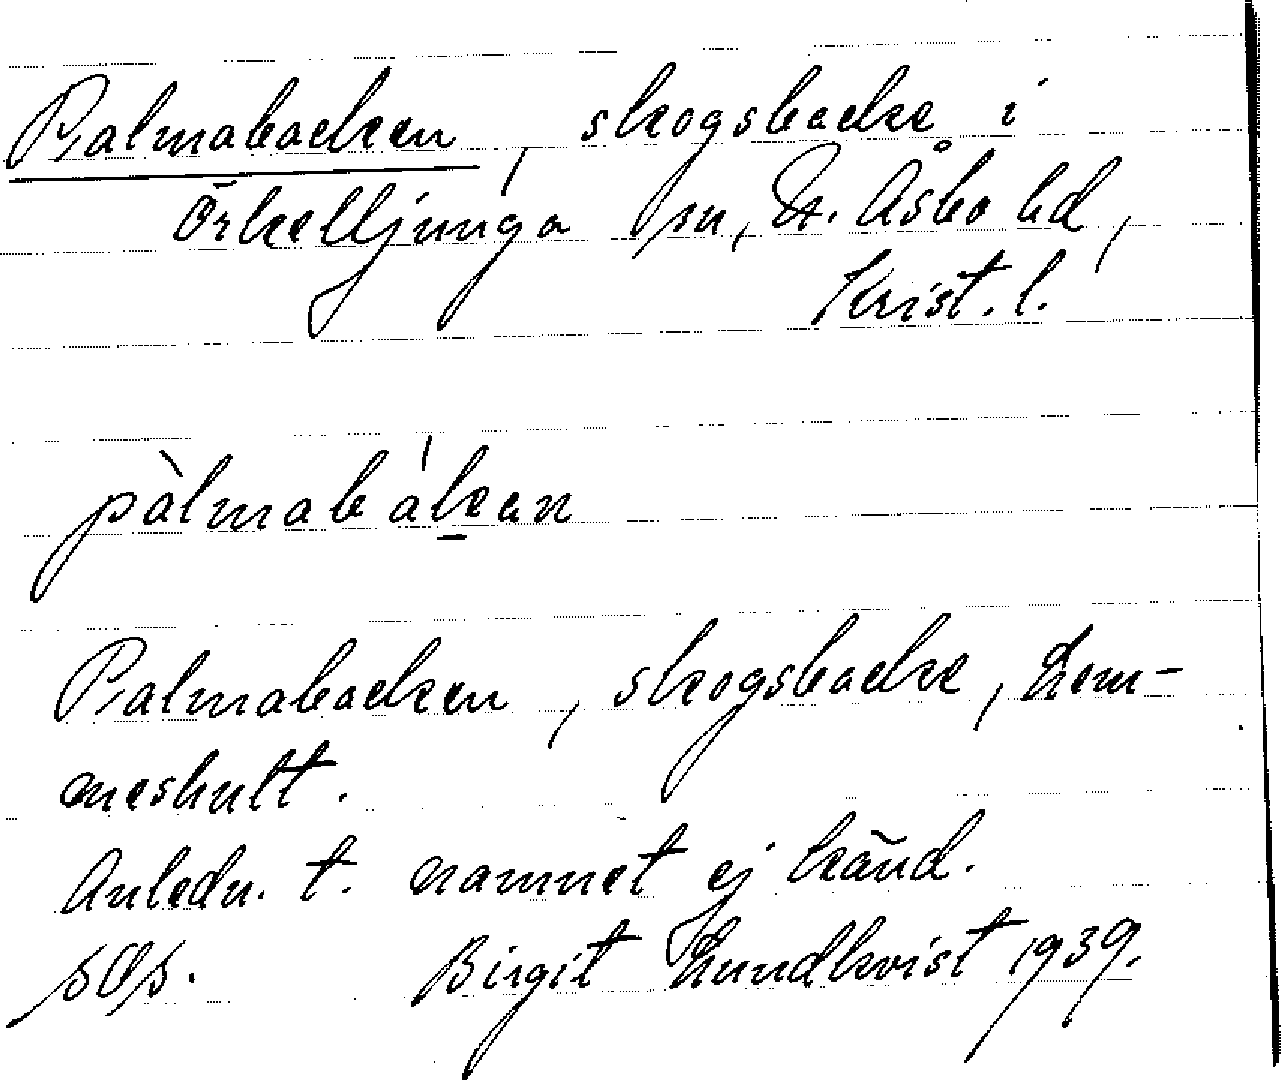 Palmabacken, skogsbacke i
Örkelljunga sn, N. Åsbo hd,
Krist. l.
pàlmabákan
Palmabacken, skogsbacke, Lem-
meshult.
Anledn. t. namnet ej känd.
Birgit Lundkvist 1939.